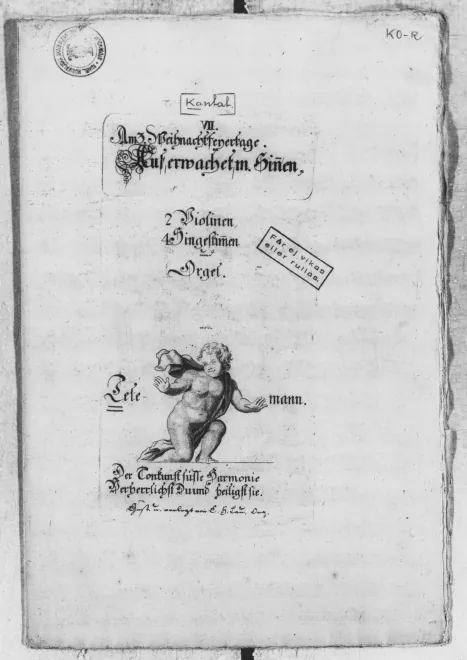 KO-R
Kantat.
VII.
Am 3. Weihnachtsfeyertage.
Auf, erwachet, m. Sin̄en,
2 Violinen
4 Singestim̄en
und
Orgel.
Får ej vikas
eller rullas.
von
Tele- mann.
Der Tonkunst süsse Harmonie
Verherrlichst Du und heiligst sie.